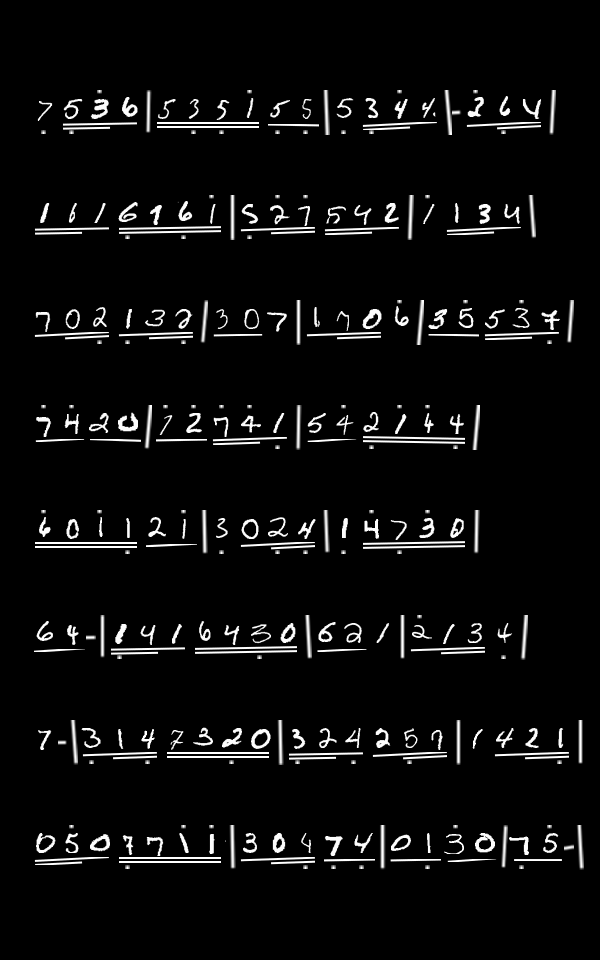 7 5 3 6 | 5 3 5 1 5 5 | 5 3 4 4 | - 2 6 4 |
1 6 1 6 1 6 1 | 5 2 7 5 4 2 | 1 1 3 4 |
7 0 2 1 3 2 | 3 0 7 | 1 7 0 6 | 3 5 5 3 7 |
7 4 2 0 | 7 2 7 4 1 | 5 4 2 1 4 4 |
6 0 1 1 2 1 | 3 0 2 4 | 1 4 7 3 0 |
6 4 - | 1 4 1 6 4 3 0 | 6 2 1 | 2 1 3 4 |
7 - | 3 1 4 7 3 2 0 | 3 2 4 2 5 7 | 1 4 2 1 |
0 5 0 7 7 1 1 | 3 0 4 7 4 | 0 1 3 0 | 7 5 - |